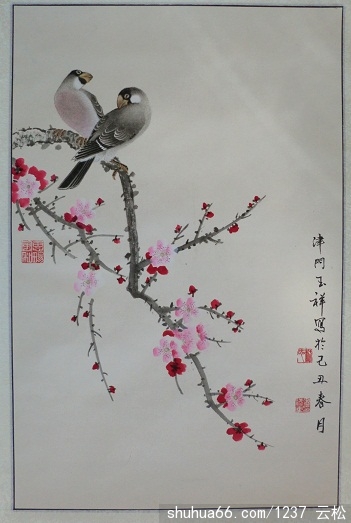 津門玉祥寫於己丑春月
shuhua66.com/1237 云松